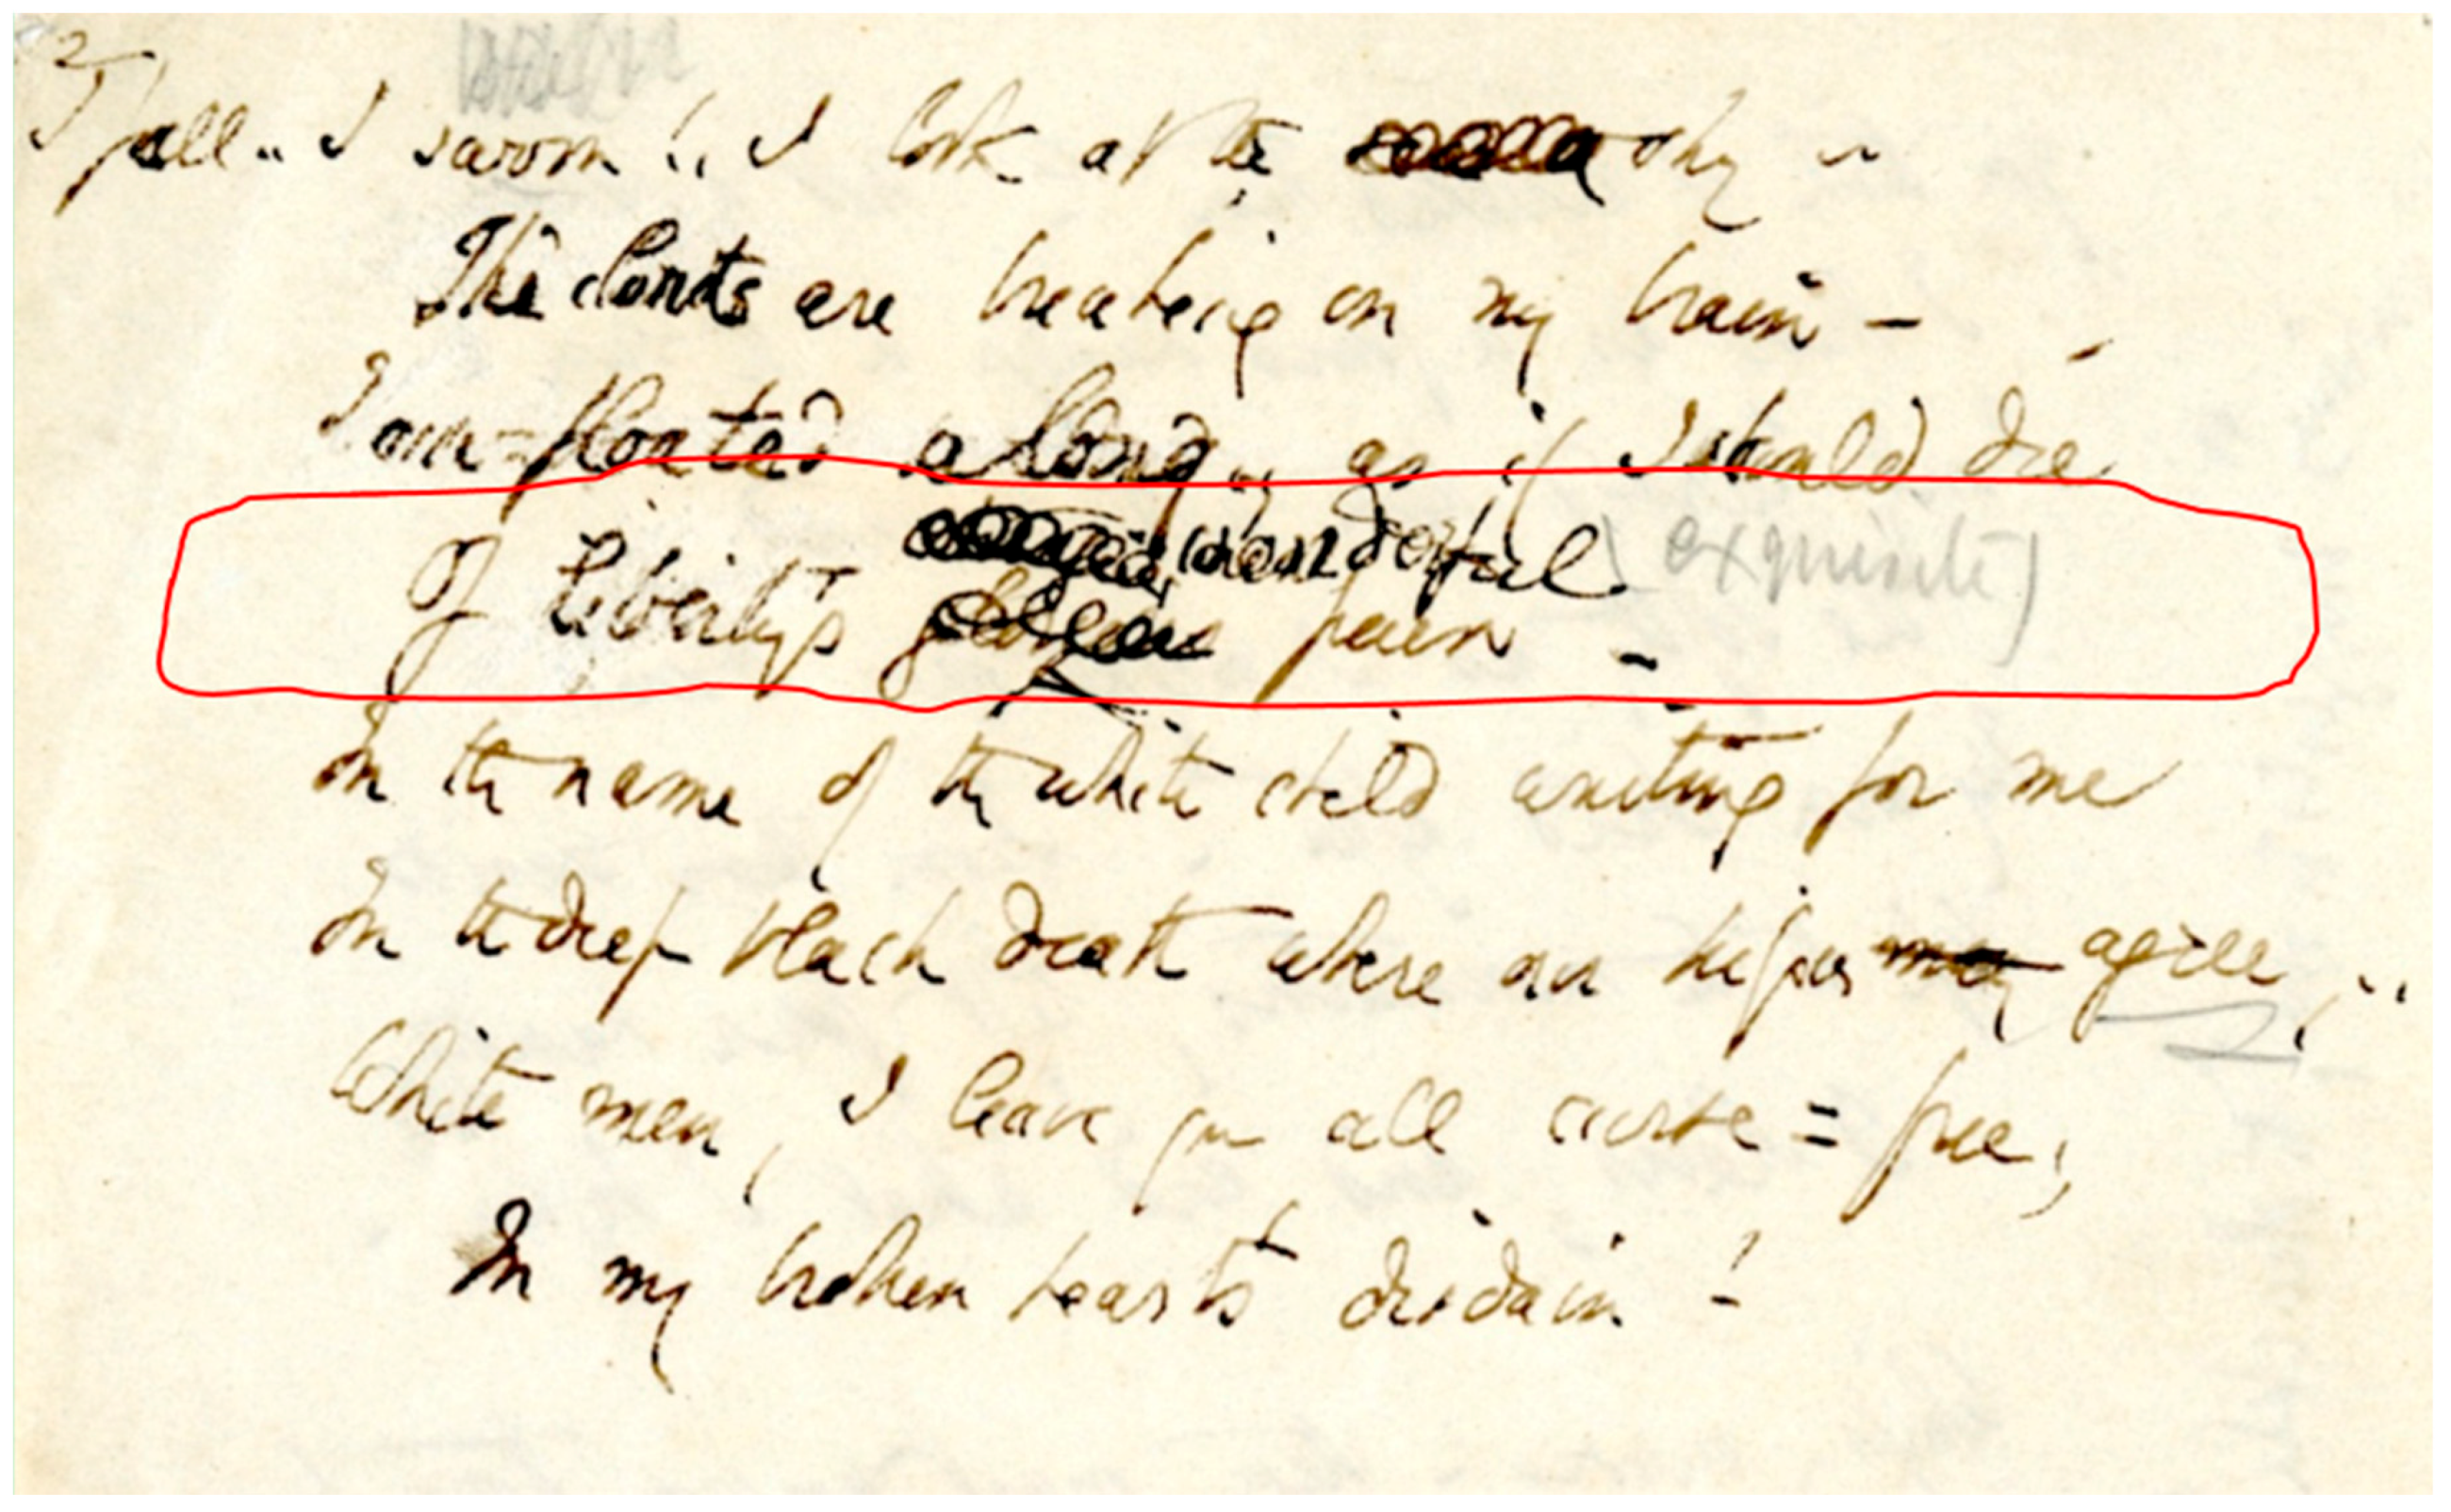 2
I fall .. I swoon !.. I look at the sky ..
The clouds are breaking on my brain –
I am floated along, as if I should die
wonderful (exquisite)
Of Liberty's pain –
In the name of the white child waiting for me
In the deep black death where our kisses may agree, ..
White men, I leave you all curse = free,
In my broken heart's disdain !